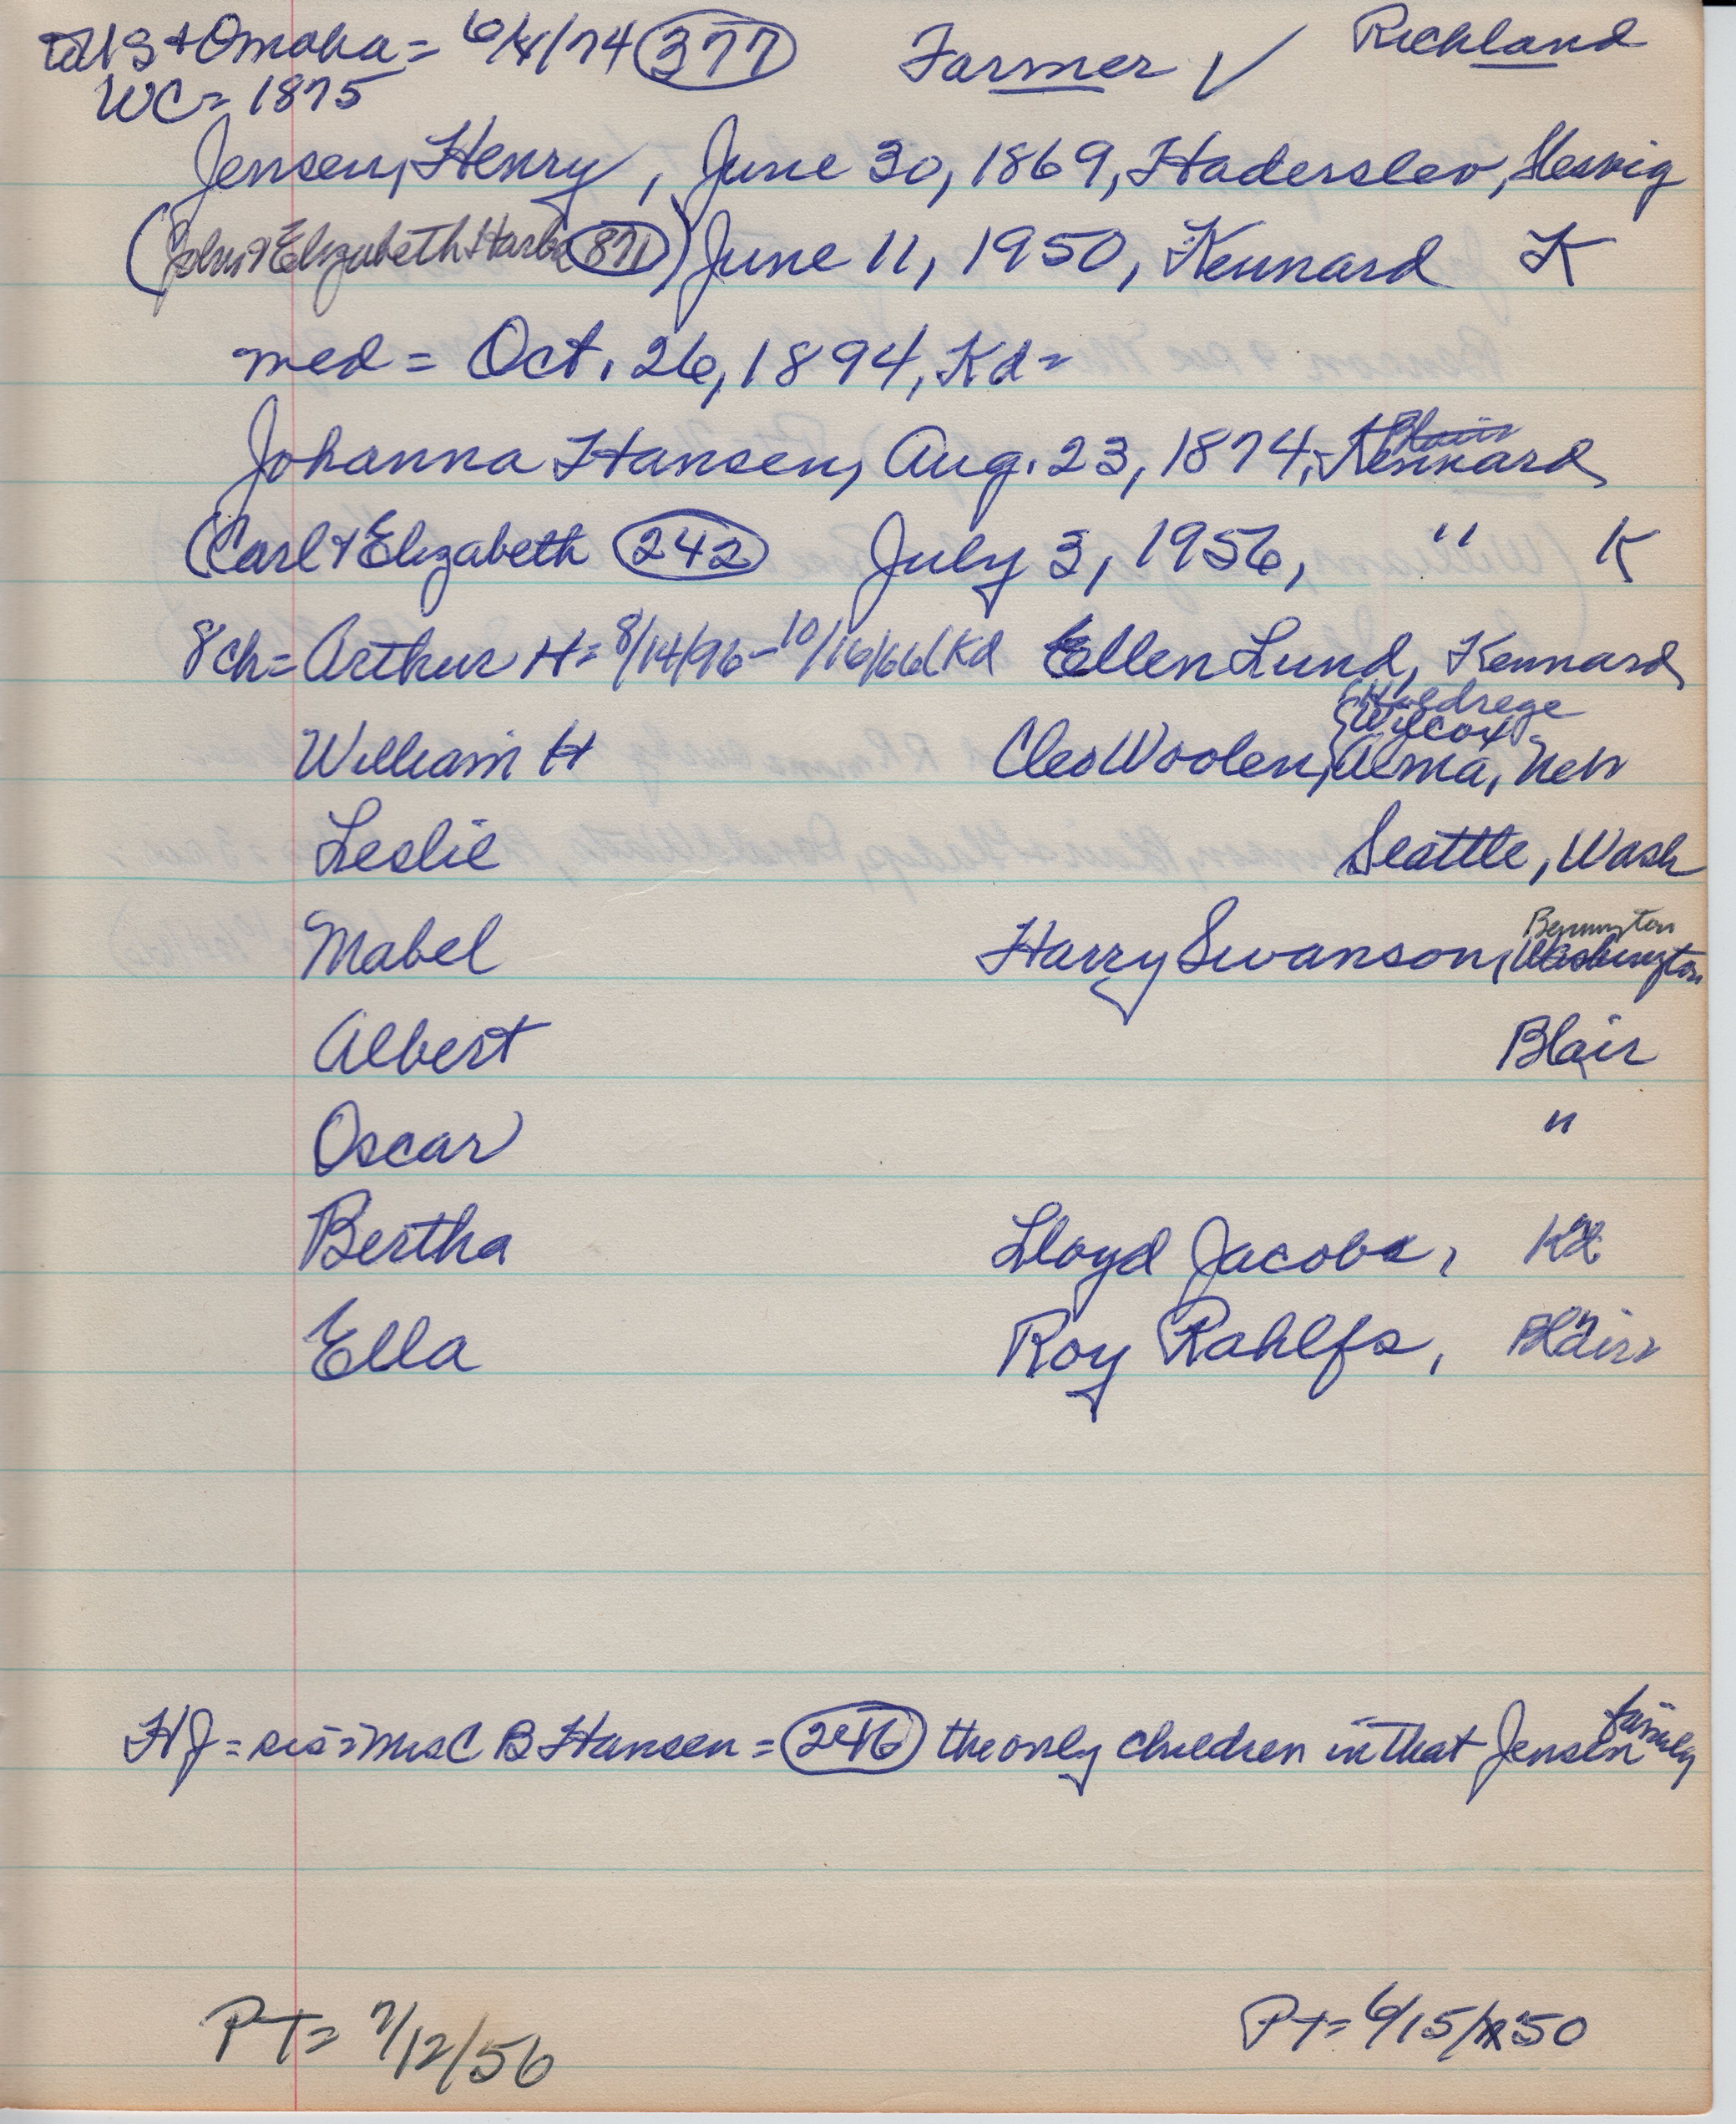 to US & Omaha = 6/4/74 (377) Farmer ✓ Richland
WC = 1875
Jensen, Henry, June 30, 1869, Haderslev, Slesvig
(John & Elizabeth (871)) June 11, 1950, Kennard K
med = Oct. 26, 1894, Kd =
Johanna Hansen, Aug. 23, 1874, Kennard Blair
(Carl & Elizabeth (242) July 3, 1956, " K
8 ch = Arthur H = 8/14/96 - 10/16/66 (Kd Ellen Lund, Kennard
Holdrege
Wilcox
William H Cleo Woolen, Alma, Neb
Leslie Seattle, Wash
Bennington
Mabel Harry Swanson, Washington
Albert Blair
Oscar "
Bertha Lloyd Jacobs, Kd
Ella Roy Rahlfs, Blair
HJ = sis = Mrs C B Hansen = (246) the only children in that Jensen family
PT = 7/12/56 PT = 6/15/50